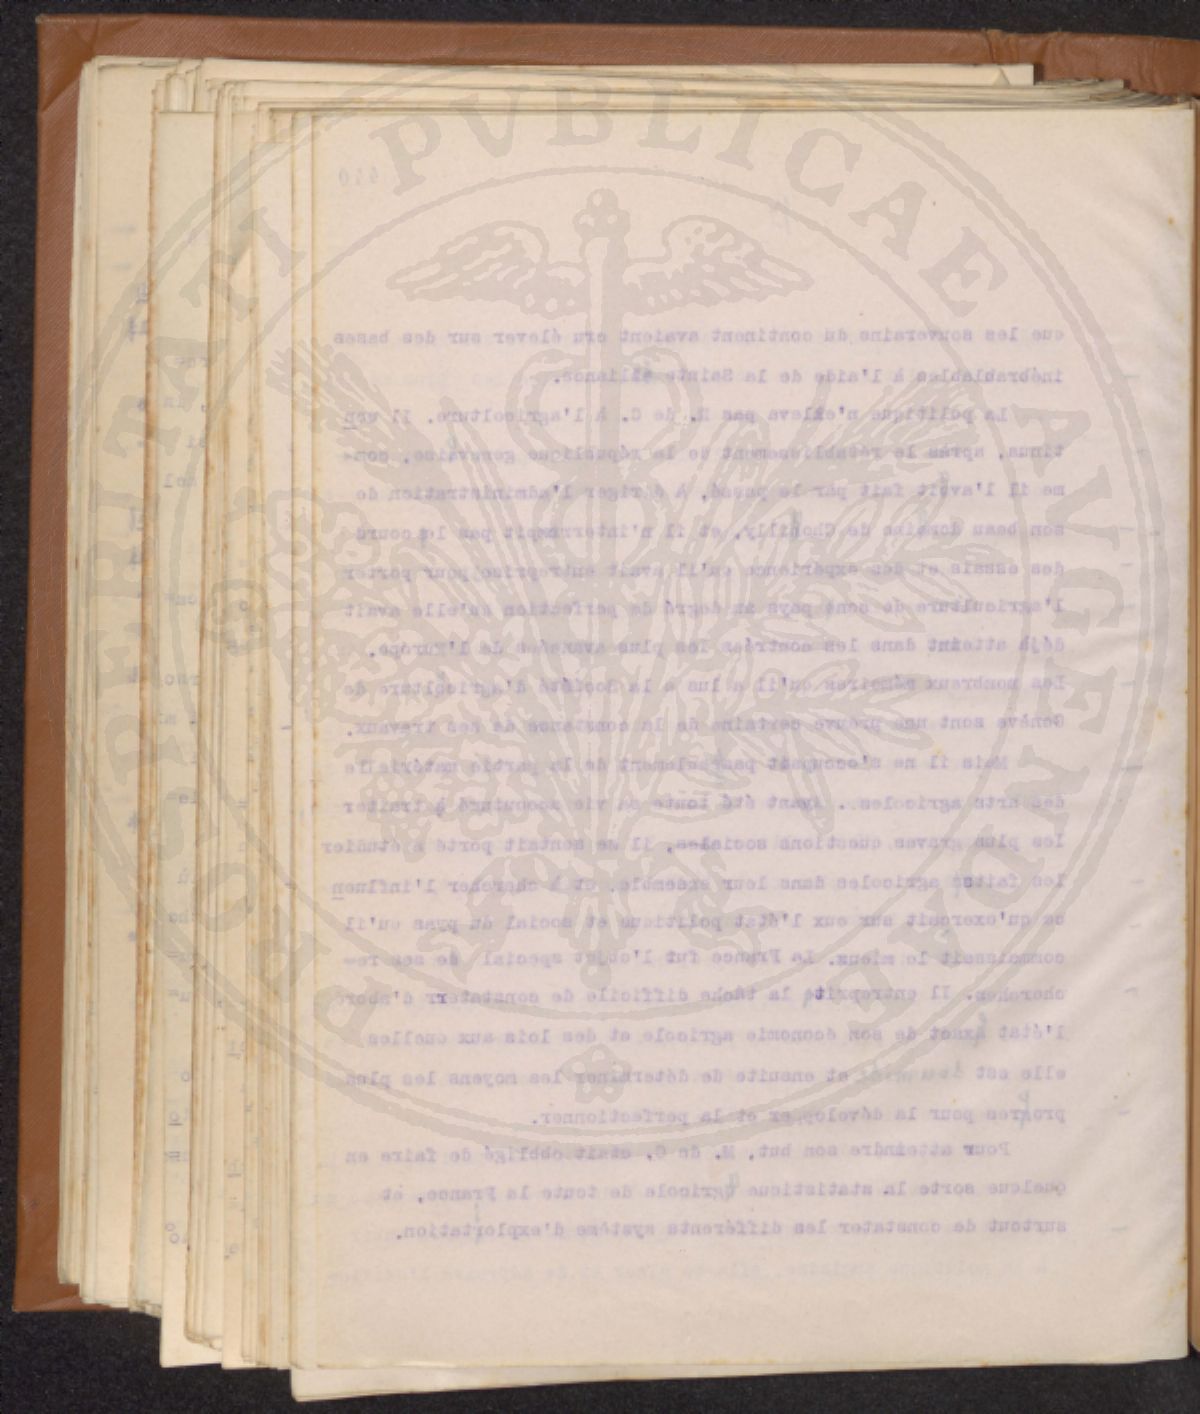 410
que les souverains du continent avaient cru élever sur des bases
inébranlables à l'aide de la Sainte Alliance.
La politique n'enleva pas M. de C. à l'agricolture. Il con
tinua, après le rétablissement de la république genevoise, com-
me il l'avait fait par le passé, à diriger l'administration de
son beau domaine de Chouilly, et il n'interrompit pas le cours
des essais et des expérience qu'il avait entreprise pour porter
l'agriculture de sone pays au degré de perfection qu'elle avait
déjà atteint dans les contrées les plus avancées de l'Europe.
Les nombreux mémoires qu'il a lus a la Société d'agricolture de
Genève sont une preuve certaine de la constance de ces travaux.
Mais il ne s'occupait pas seulement de la partie matérielle
des arts agricoles. Ayant été toute sa vie accoutumé à traiter
les plus graves questions sociales, il se sentait porté a étudier
les faits agricoles dans leur ensemble, et à chercher l'influen
ce qu'exerçait sur eux l'état politique et social du pays qu'il
connaissait le mieux. La France fut l'objet special de ses re-
cherches. Il entreprit la tâche difficile de constaterr d'abord
l'état exact de son économie agricole et des lois aux quelles
elle est et ensuite de déterminer les moyens les plus
propres pour la développer et la perfectionner.
Pour atteindre son but, M. de C. était obbligé de faire en
quelque sorte la statistique agricole de toute la France, et
surtout de constater les différents système d'exploitation.
PROSPERITATI PUBLICAE AUGENDAE